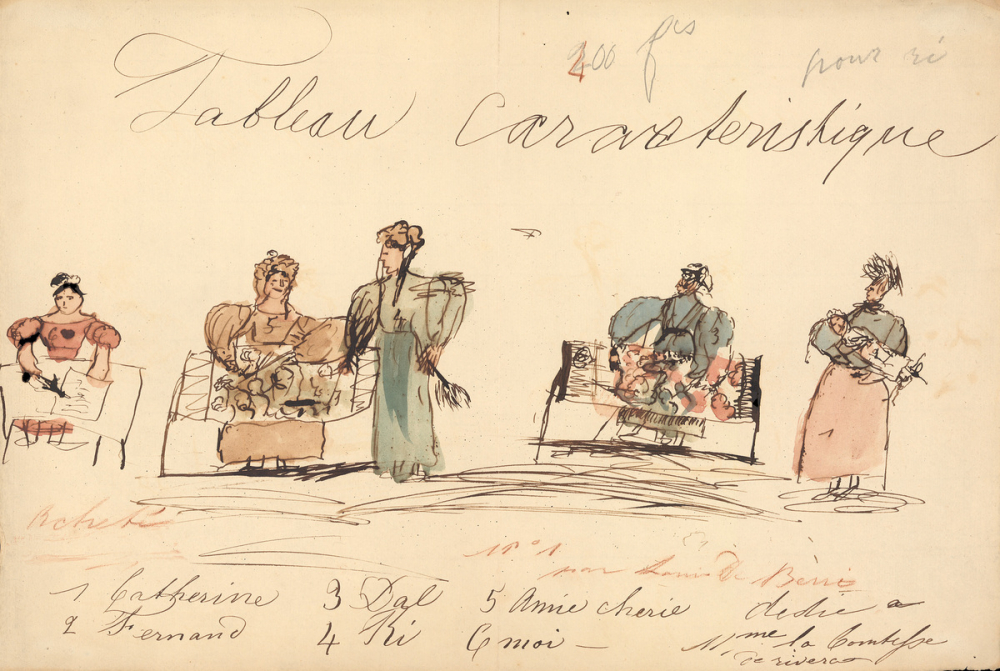 400 frs
pour ri
Tableau Caracteristique
5
4
3
2
1
acheté
N° 1
par Louis De Berri
1 Catherine 3 Dal 5 Amie cherie
2 Fernand 4 Ri 6 moi
dedié a
Mme la Comtesse
de